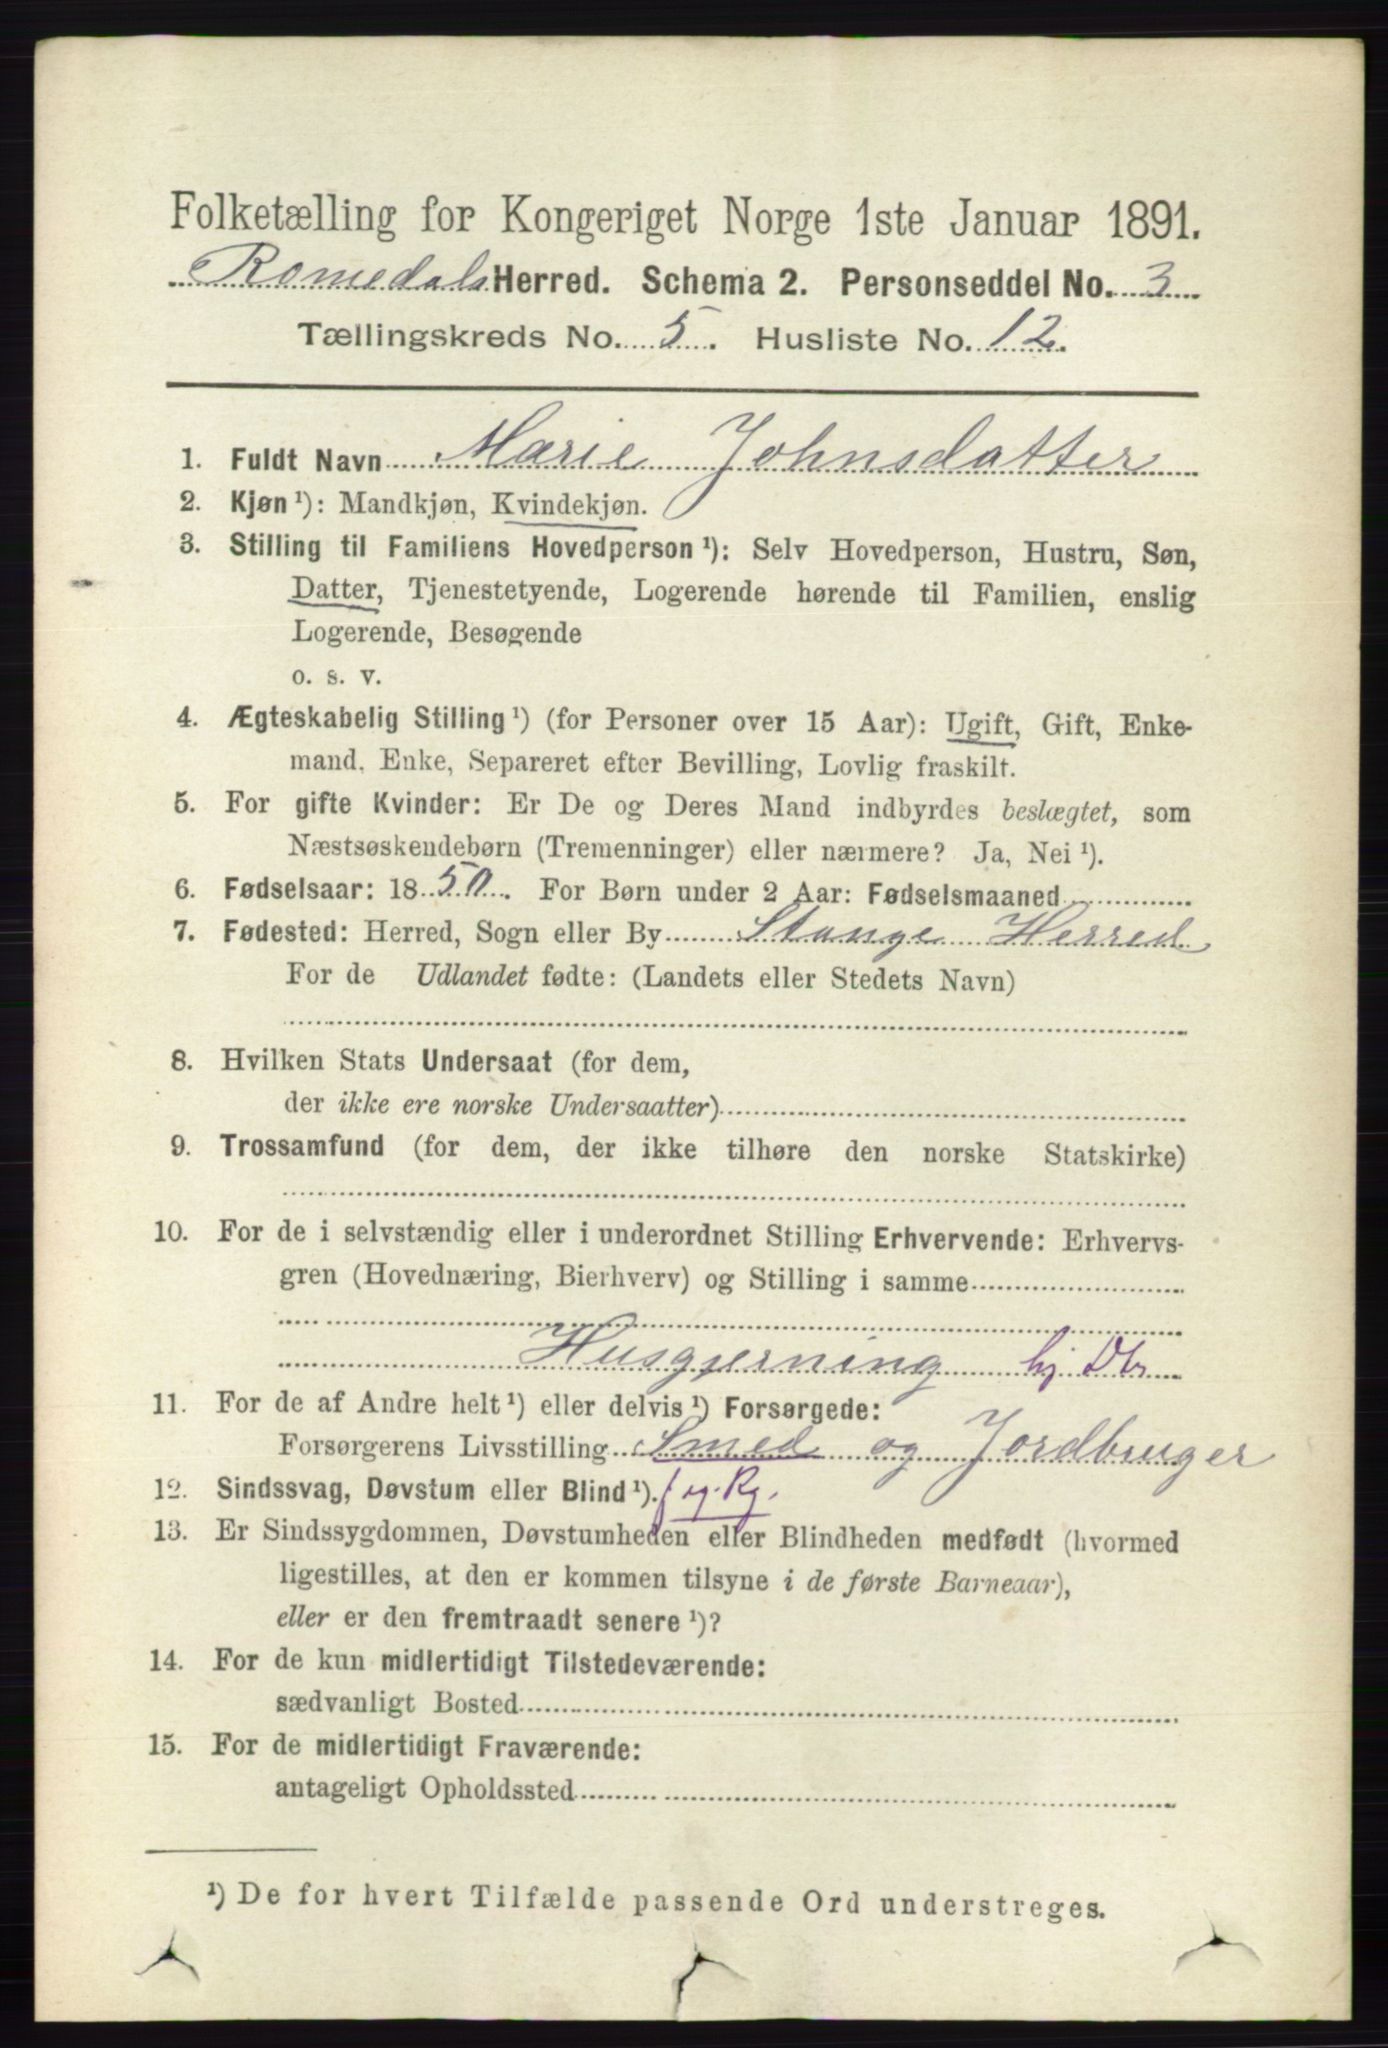 Folketælling for Kongeriget Norge 1ste Januar 1891.
Romedals Herred. Schema 2. Personseddel No. 3
Tællingskreds No. 5. Husliste No. 12.
1. Fuldt Navn Marie Johnsdatter
2. Kjøn ¹): Mandkjøn, Kvindekjøn.
3. Stilling til Familiens Hovedperson ¹): Selv Hovedperson, Hustru, Søn,
Datter, Tjenestetyende, Logerende hørende til Familien, enslig
Logerende, Besøgende
o. s. v.
4. Ægteskabelig Stilling ¹) (for Personer over 15 Aar): Ugift, Gift, Enke-
mand, Enke, Separeret efter Bevilling, Lovlig fraskilt.
5. For gifte Kvinder: Er De og Deres Mand indbyrdes beslægtet, som
Næstsøskendebørn (Tremenninger) eller nærmere? Ja, Nei ¹).
6. Fødselsaar: 1850. For Børn under 2 Aar: Fødselsmaaned
7. Fødested: Herred, Sogn eller By Stange Herred
For de Udlandet fødte: (Landets eller Stedets Navn)
8. Hvilken Stats Undersaat (for dem,
der ikke ere norske Undersaatter)
9. Trossamfund (for dem, der ikke tilhøre den norske Statskirke)
10. For de i selvstændig eller i underordnet Stilling Erhvervende: Erhvervs-
gren (Hovednæring, Bierhverv) og Stilling i samme
Husgjerning hj Dtr
11. For de af Andre helt ¹) eller delvis ¹) Forsørgede:
Forsørgerens Livsstilling Smed og Jordbruger
12. Sindssvag, Døvstum eller Blind ¹).
13. Er Sindssygdommen, Døvstumheden eller Blindheden medfødt (hvormed
ligestilles, at den er kommen tilsyne i de første Barneaar),
eller er den fremtraadt senere ¹)?
14. For de kun midlertidigt Tilstedeværende:
sædvanligt Bosted
15. For de midlertidigt Fraværende:
antageligt Opholdssted
¹) De for hvert Tilfælde passende Ord understreges.